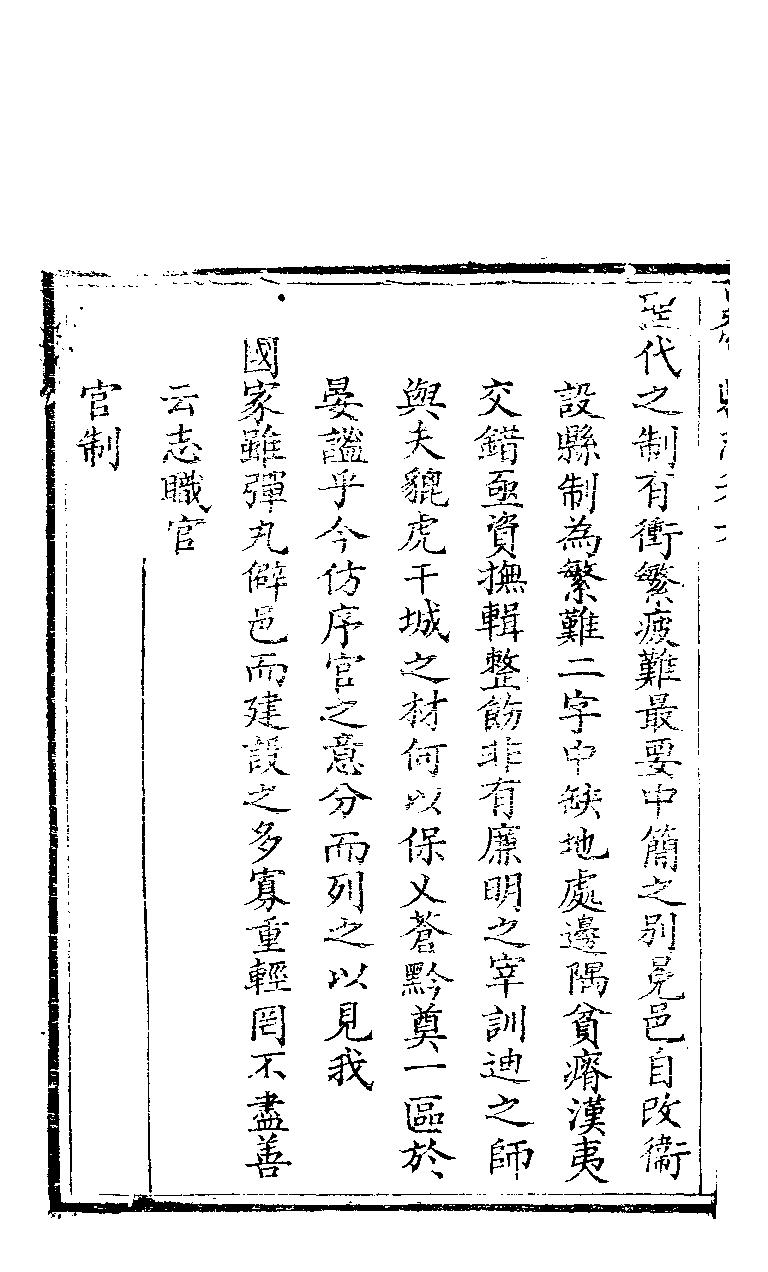 聖代之制有衝繁疲難最要中簡之别冕邑自改衛
設縣制為繁難二字中缺地處邊隅貧瘠漢夷
交錯亟資撫輯整飭非有廉明之宰訓迪之師
與夫貔虎干城之材何以保乂蒼黔奠一區於
晏謐乎今仿序官之意分而列之以見我
國家雖彈丸僻邑而建設之多寡重輕罔不盡善
云志職官
官制